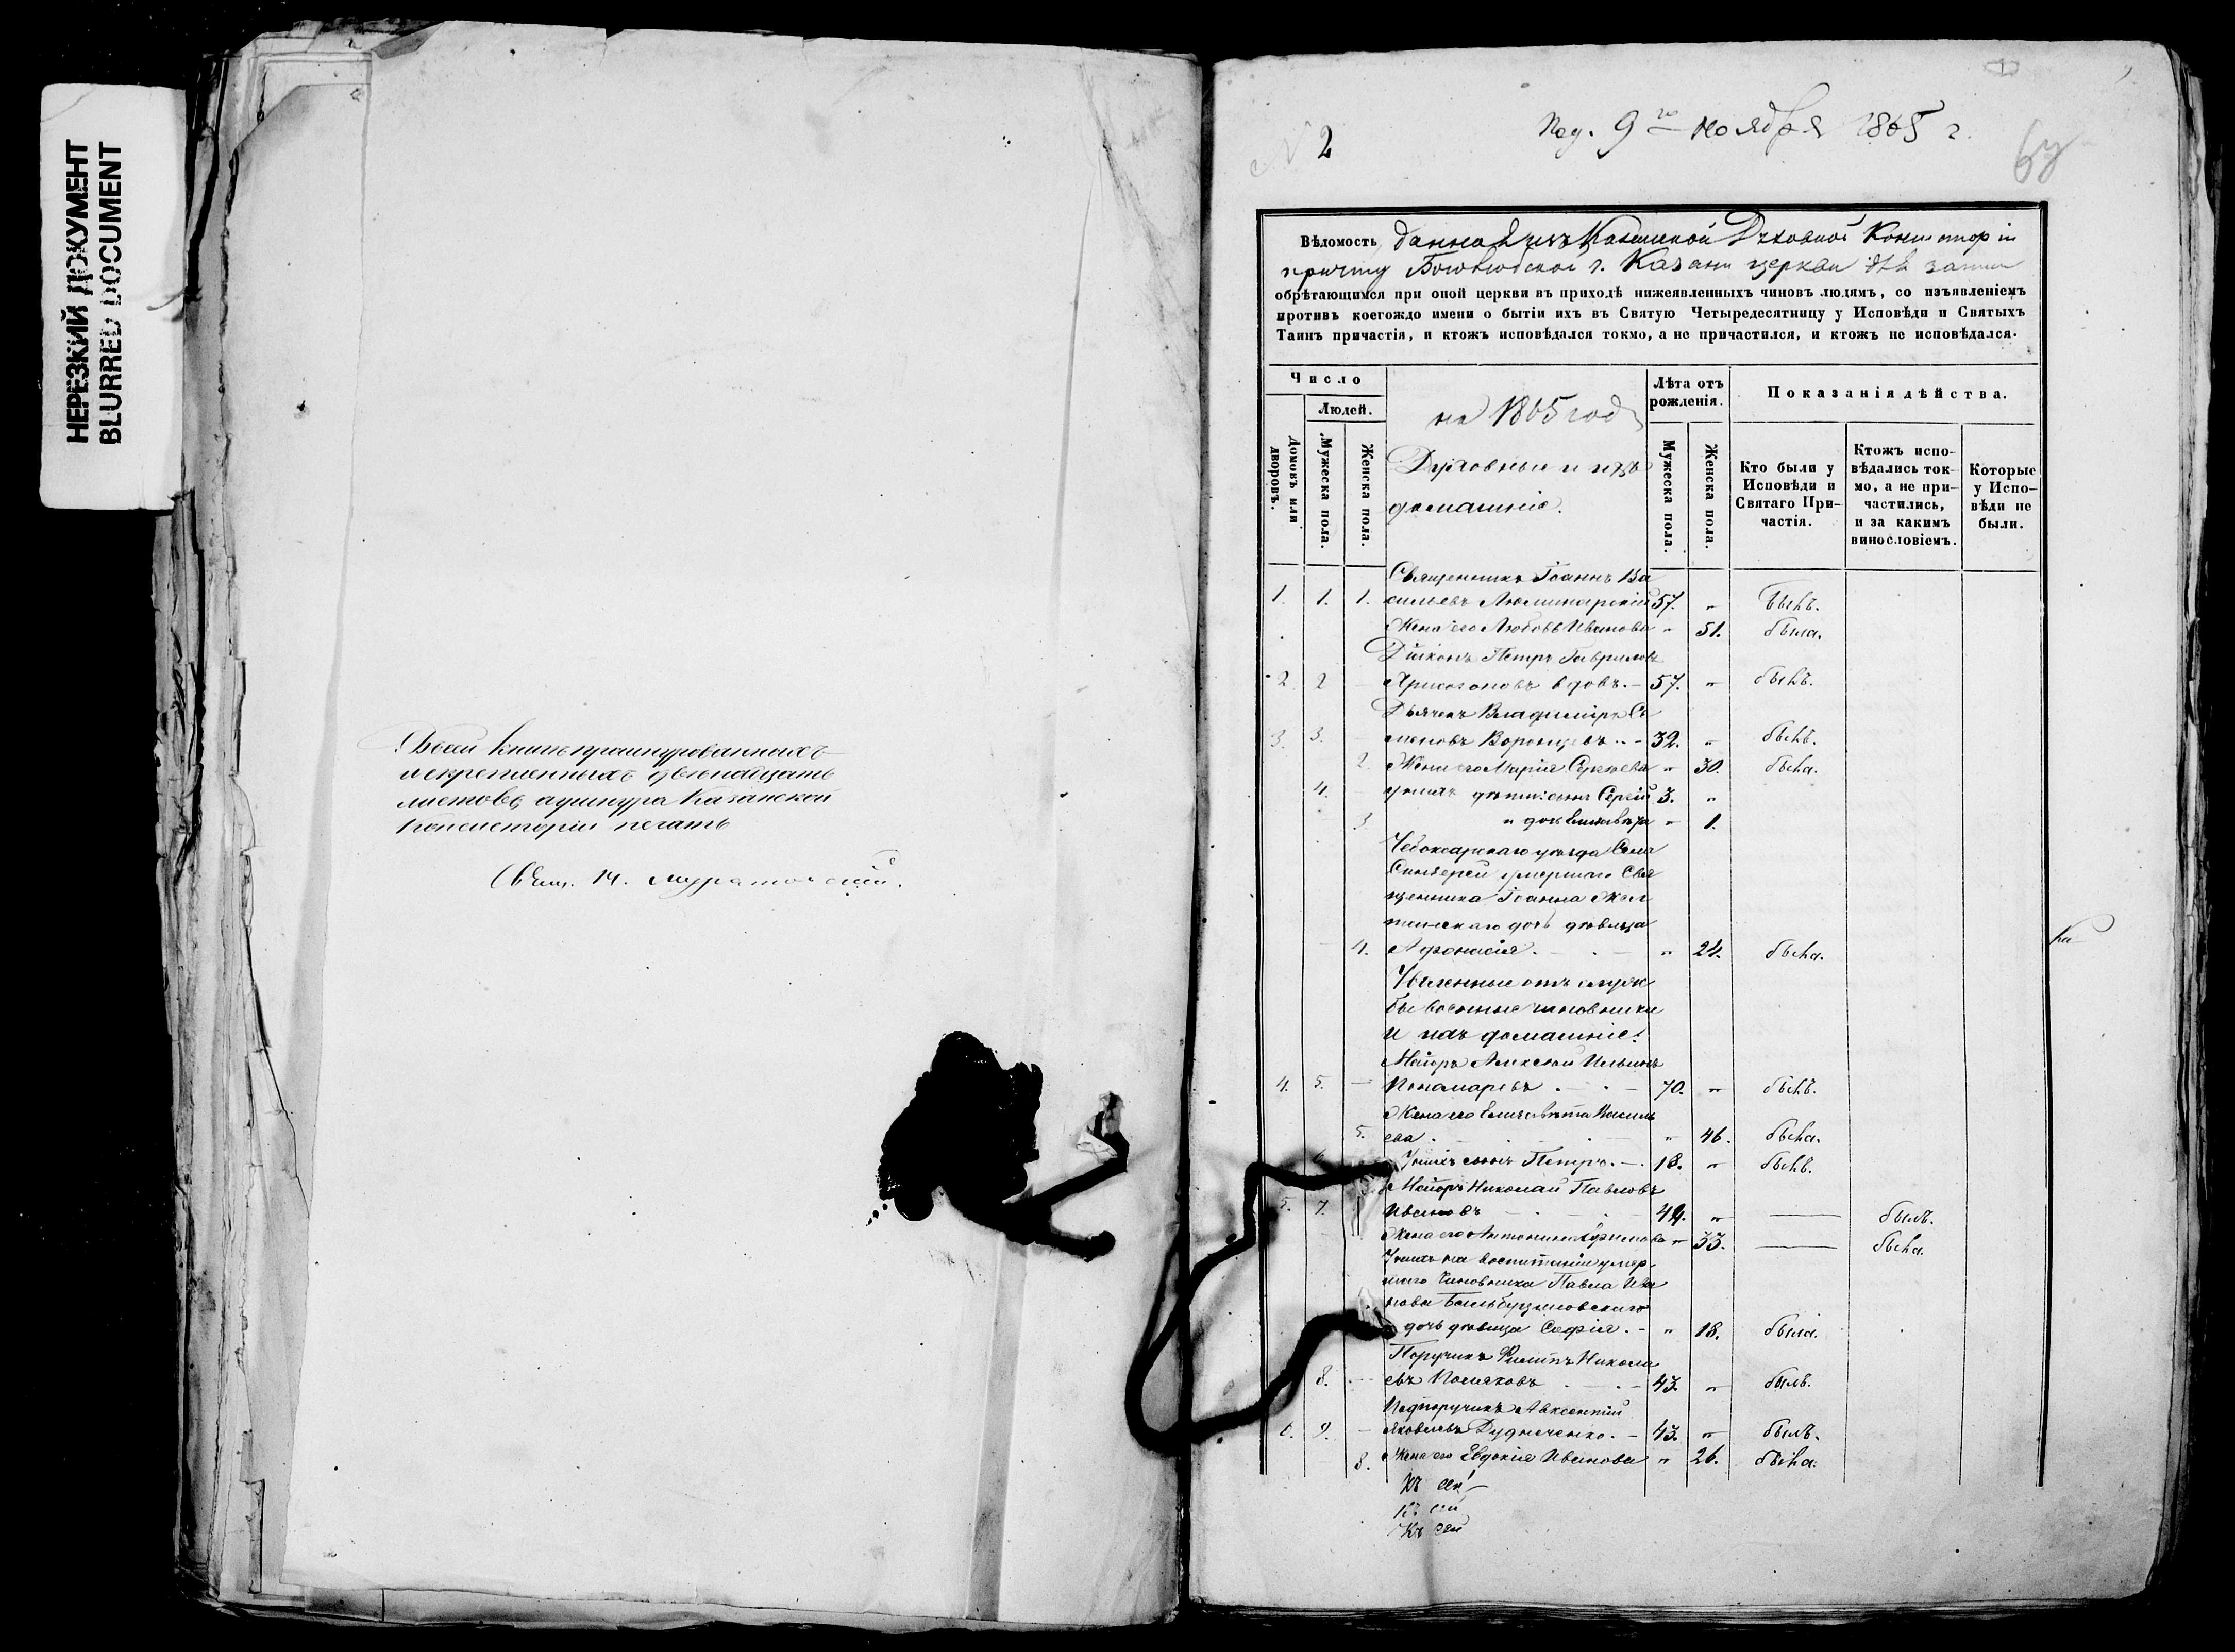 НЕРЕЗКИЙ ДОКУМЕНТ
BLURRED DOCUMENT
въ сей книге прошнурованныхъ
и скрепленныхъ двенадцать
листовъ а шнура Казанской
Консисторіи печать
2
Под. 9го ноября 1865 г.
Вѣдомость данная изъ Казанской Духовной Консисторіи
причту г. Казани церкви для записи
обрѣтающимся при оной церкви въ приходѣ нижеявленныхъ чиновъ людямъ, со изъявленіемъ
противъ коегождо имени о бытіи ихъ въ Святую Четыредесятницу у Исповѣди и Святыхъ
Таинъ причастія, и ктожъ исповѣдался токмо, а не причастился, и ктожъ не исповѣдался.
Число
Людей.
Домовъ или дворовъ.
Мужеска пола.
Женска пола.
на 1865 годъ
Духовные и ихъ
домашніе.
Лѣта отъ рожденія.
Мужеска пола.
Женска пола.
Показанія дѣйства.
Кто были у Исповѣди и Святаго Причастія.
Ктожъ исповѣдались токмо, а не причастились, и за какимъ винословіемъ.
Которые у Исповѣди не были.
Священникъ Іоаннъ Ва
1. 1. 1. сильевъ Люминарскій 57. „ былъ.
Жена его Любовь Иванова „ 51. была.
Діаконъ Петръ Гавриловъ
2. 2 Хрисогоновъ вдовъ. 57. „ былъ.
Дьячекъ Владиміръ Се
3. 3. меновъ Воронцовъ 32. „ былъ.
2. Жена его Марія Сергѣева „ 30. была.
4. у нихъ дѣти: сынъ Сергій 3. „
3 и дочь Елизавета „ 1.
Чебоксарскаго уѣзда Села
умершаго Свя
щенника Іоанна
дочь дѣвица
4. Афонасія. „ 24. была.
Уволенные отъ служ
бы военные чиновники
и ихъ домашніе:
Маіоръ Алексѣй Ильинъ
4. 5. — Пономаревъ 70. „ былъ.
Жена его Елисавета Василь
5. ева. „ 46. была.
У нихъ сынъ Петръ. 18. „ былъ.
Маіоръ Николай Павловъ
5. 7. Ивановъ 44. „ — былъ.
Жена его Антонина Ефимова „ 33. — была.
У нихъ на воспитаніи умер
шаго Чиновника Павла Ива
нова
дочь дѣвица Софія. „ 18. была.
Поручикъ Филиппъ Никола
8. — евъ Поляковъ 43. „ былъ.
Подпоручикъ Авксентій
6. 9. — Яковлевъ Дудниченко. 43. „ былъ.
8. Жена его Евдокія Иванова „ 26. была.
Къ сей
Къ сей
Къ сей